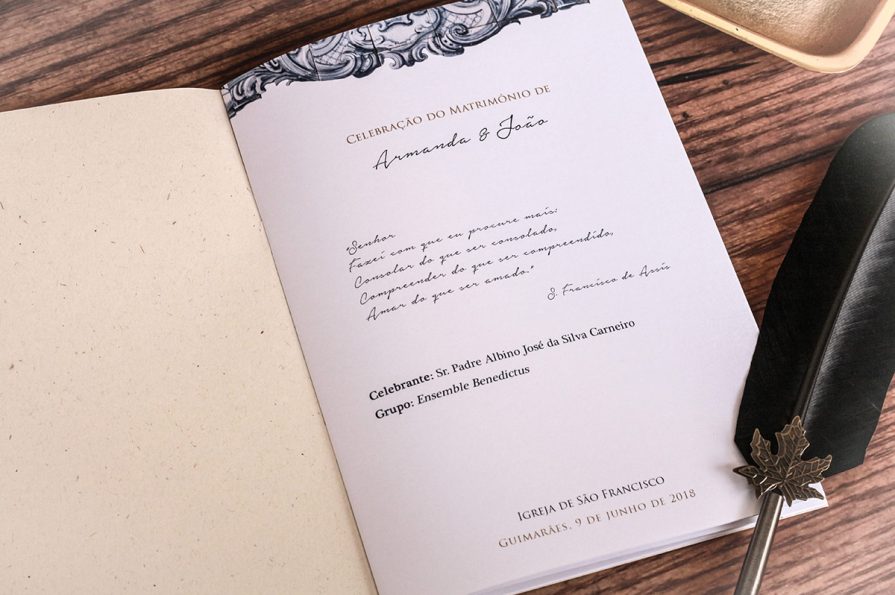 Celebração do Matrimónio de
Armanda & João
"Senhor
Fazei com que eu procure mais:
Consolar do que ser consolado,
Compreender do que ser compreendido,
Amar do que ser amado."
S. Francisco de Assis
Celebrante: Sr. Padre Albino José da Silva Carneiro
Grupo: Ensemble Benedictus
Igreja de São Francisco
Guimarães, 9 de Junho de 2018